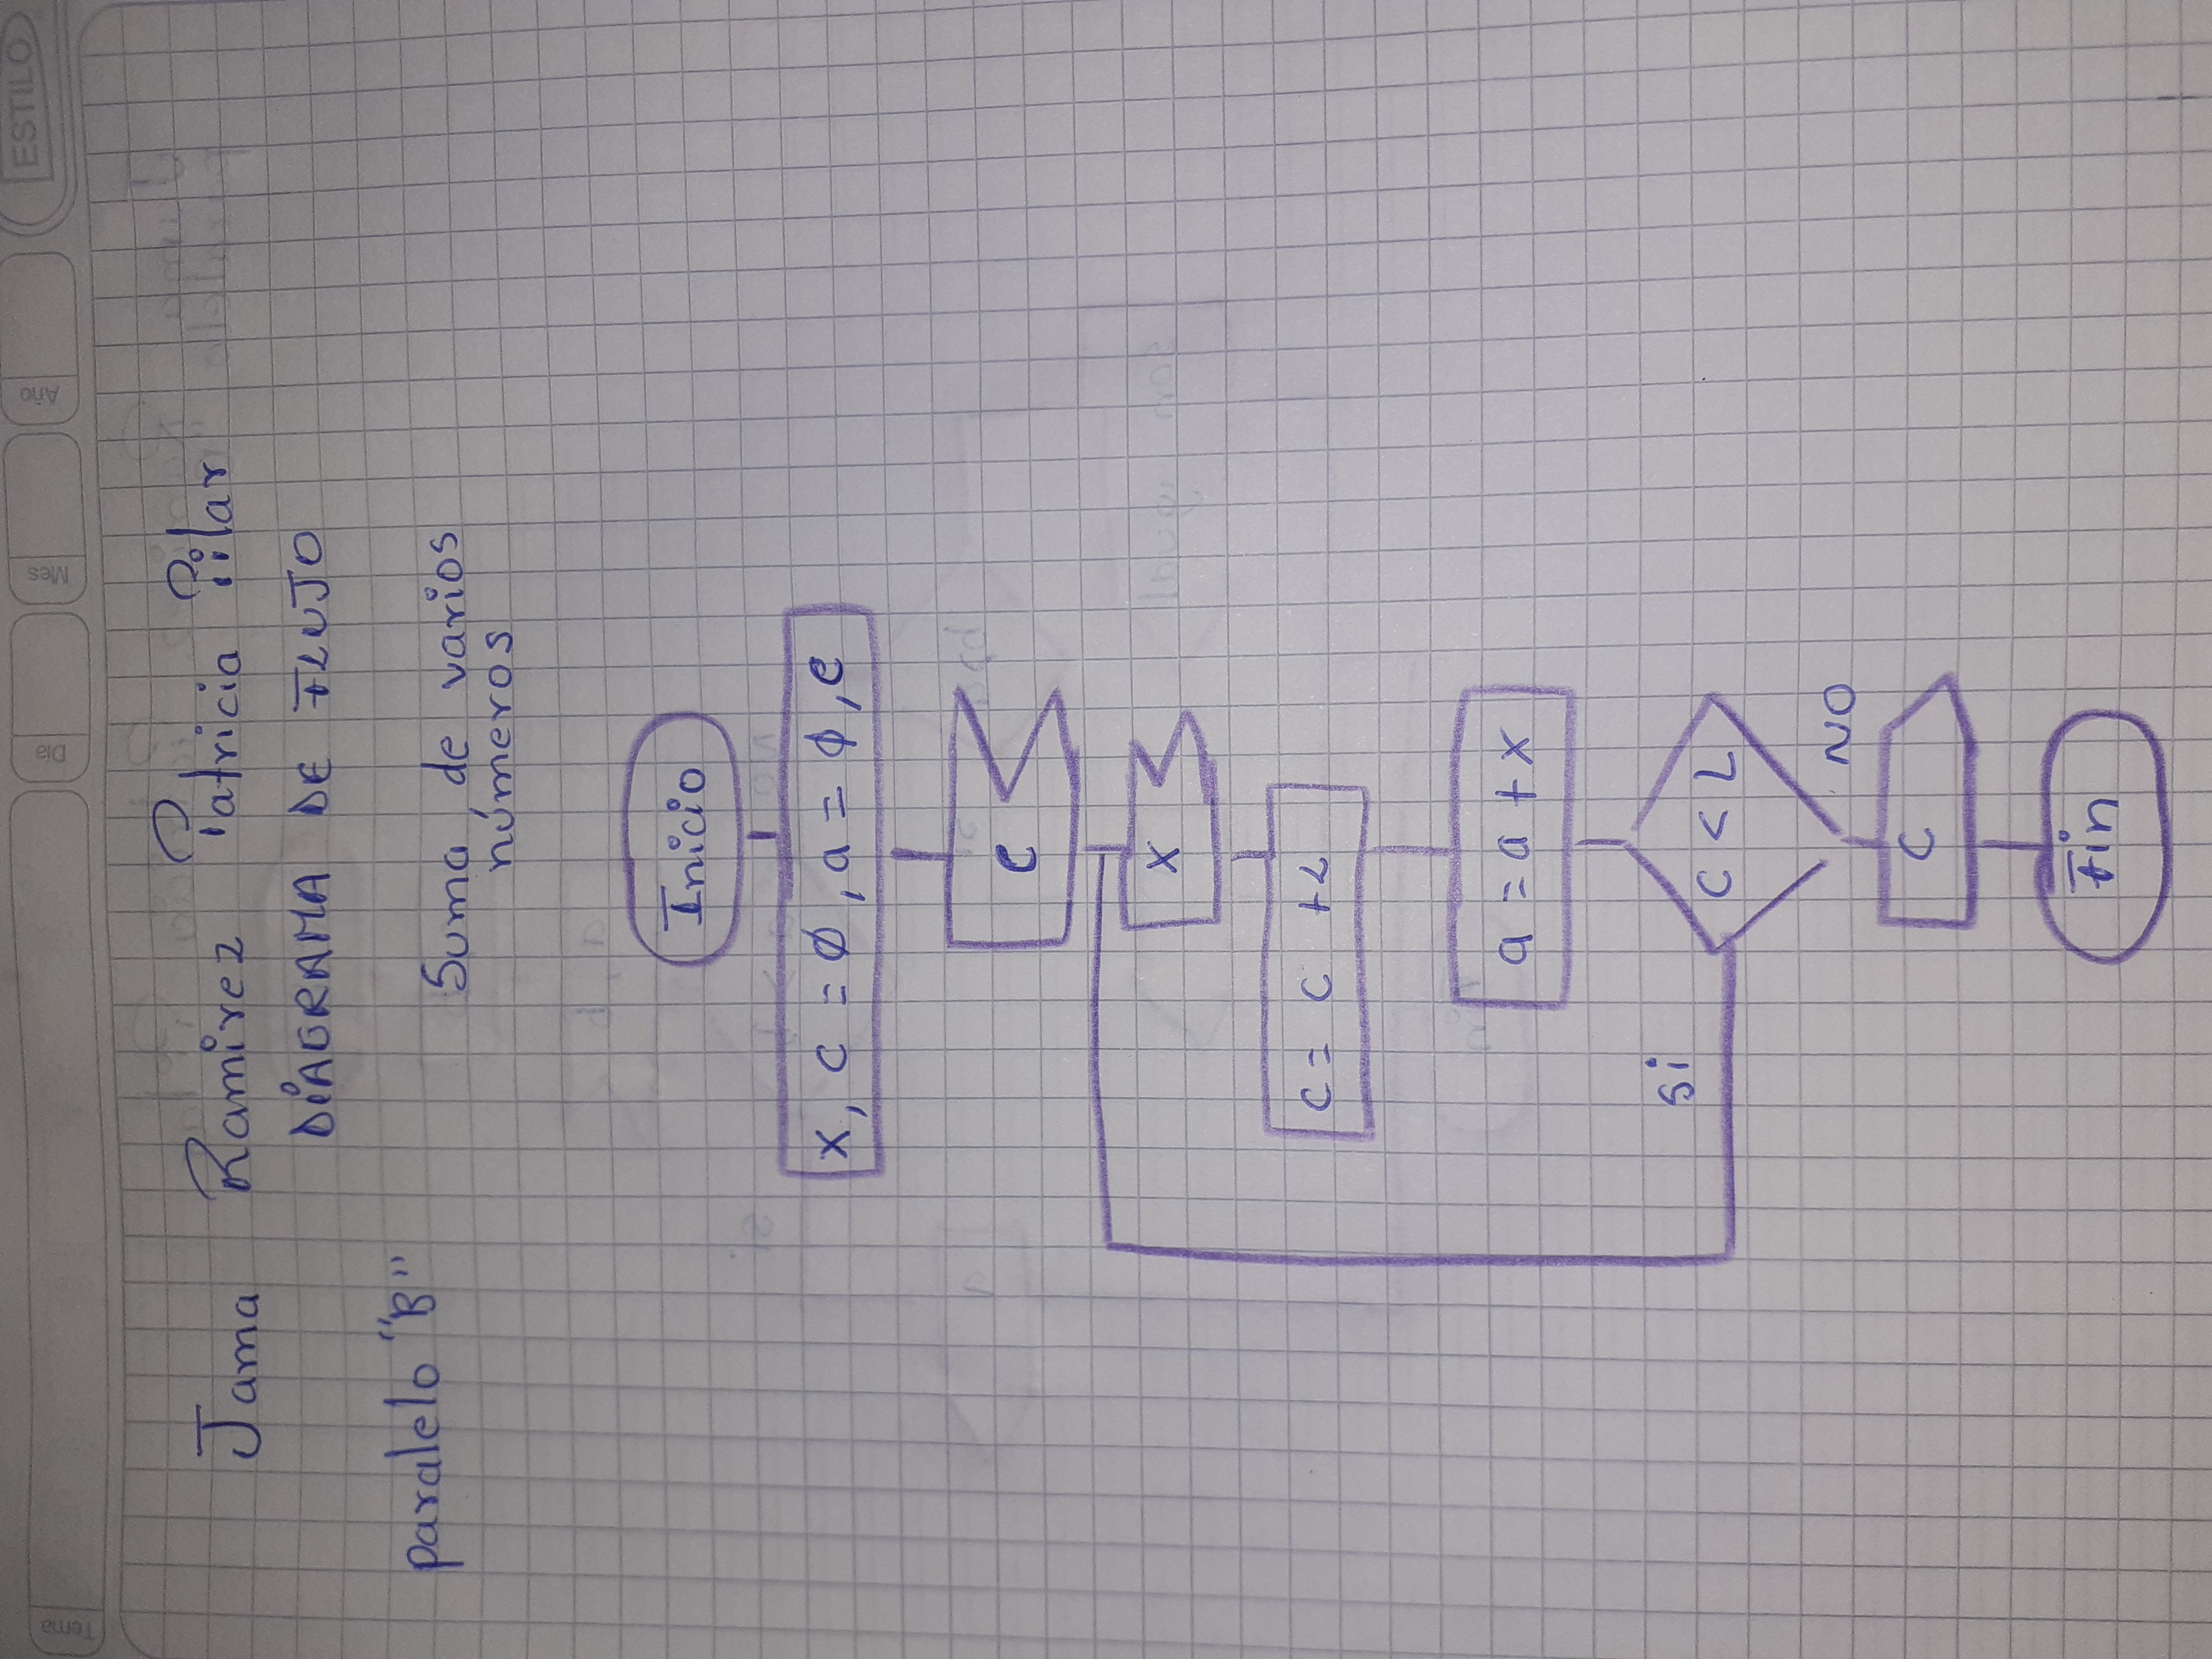 Tema
Día
Mes
Año
ESTILO
Jama Ramirez Patricia Pilar
DIAGRAMA DE FLUJO
paralelo "B"
Suma de varios
números
Inicio
x, c = Ø, a = Ø, e
e
x
c = c + L
a = a + x
si
C < L
NO
C
Fin